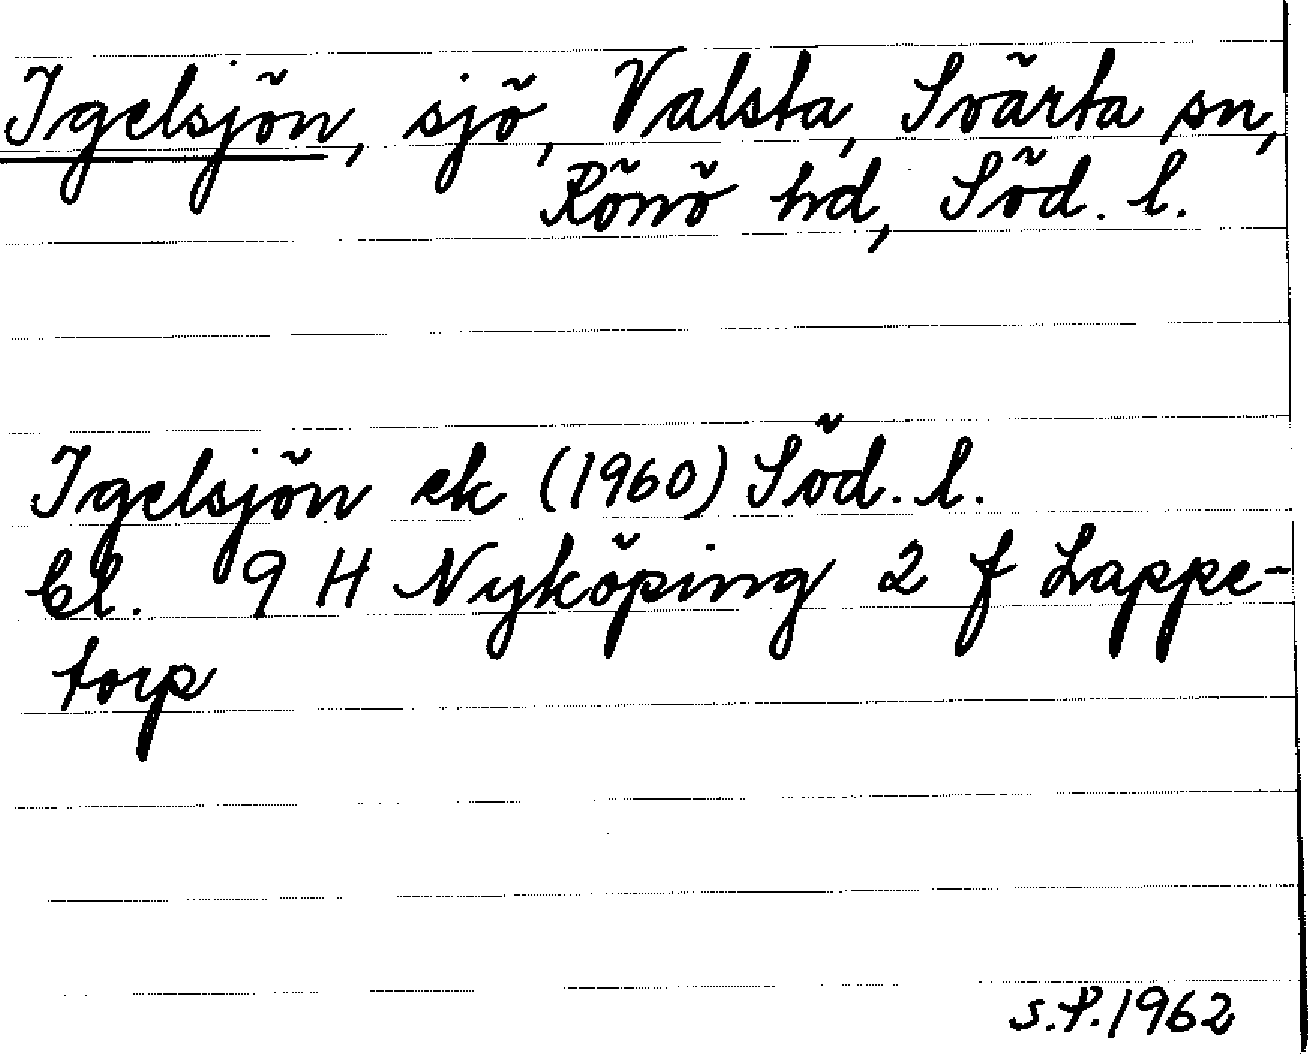 Igelsjön, sjö, Valsta, Svärta sn,
Rönö hd, Söd. l.
Igelsjön ek (1960) Söd. l.
bl. 9 H Nyköping 2 f Lappe-
torp
S.P. 1962